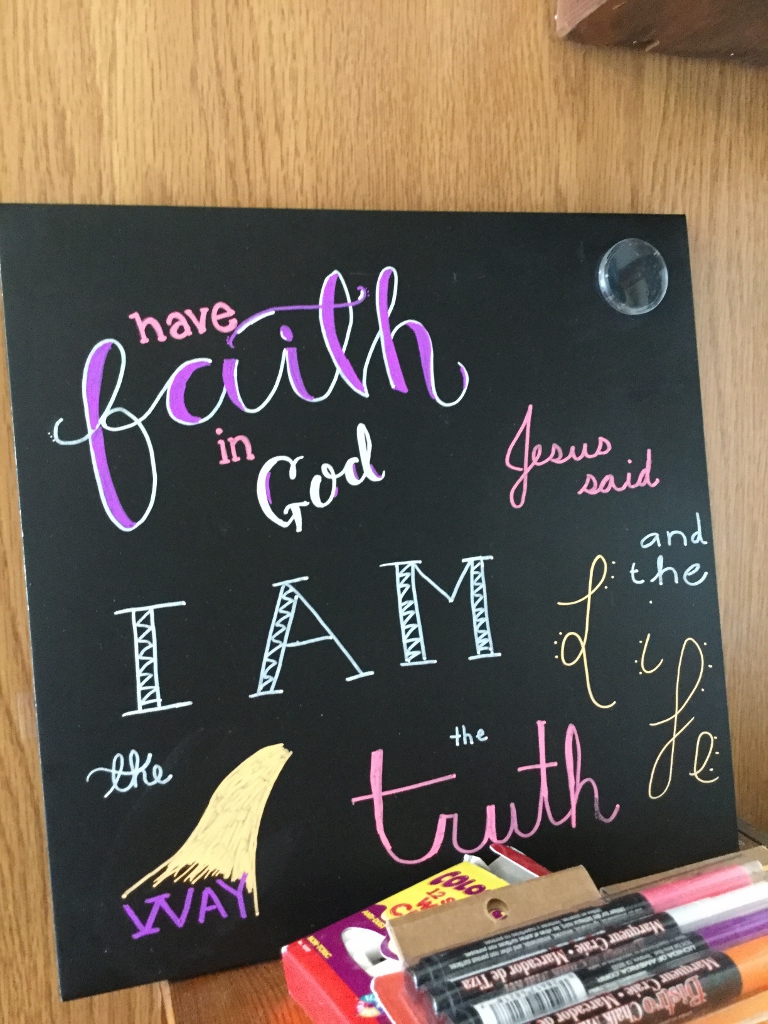 have
faith
in
God
Jesus
said
I AM
the
WAY
the
truth
and
the
Life
COLO
Marqueur Craie • Marcador de Tiza
Bistro Chalk
Marqueur Craie • Marcador